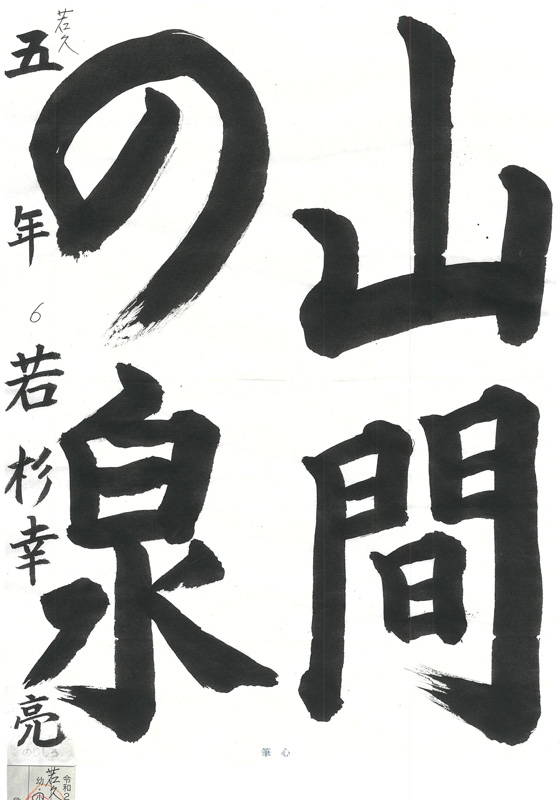 山間
の泉
五年 6 若杉幸亮
若久
筆心
のりしろ
令和2
若久
幼